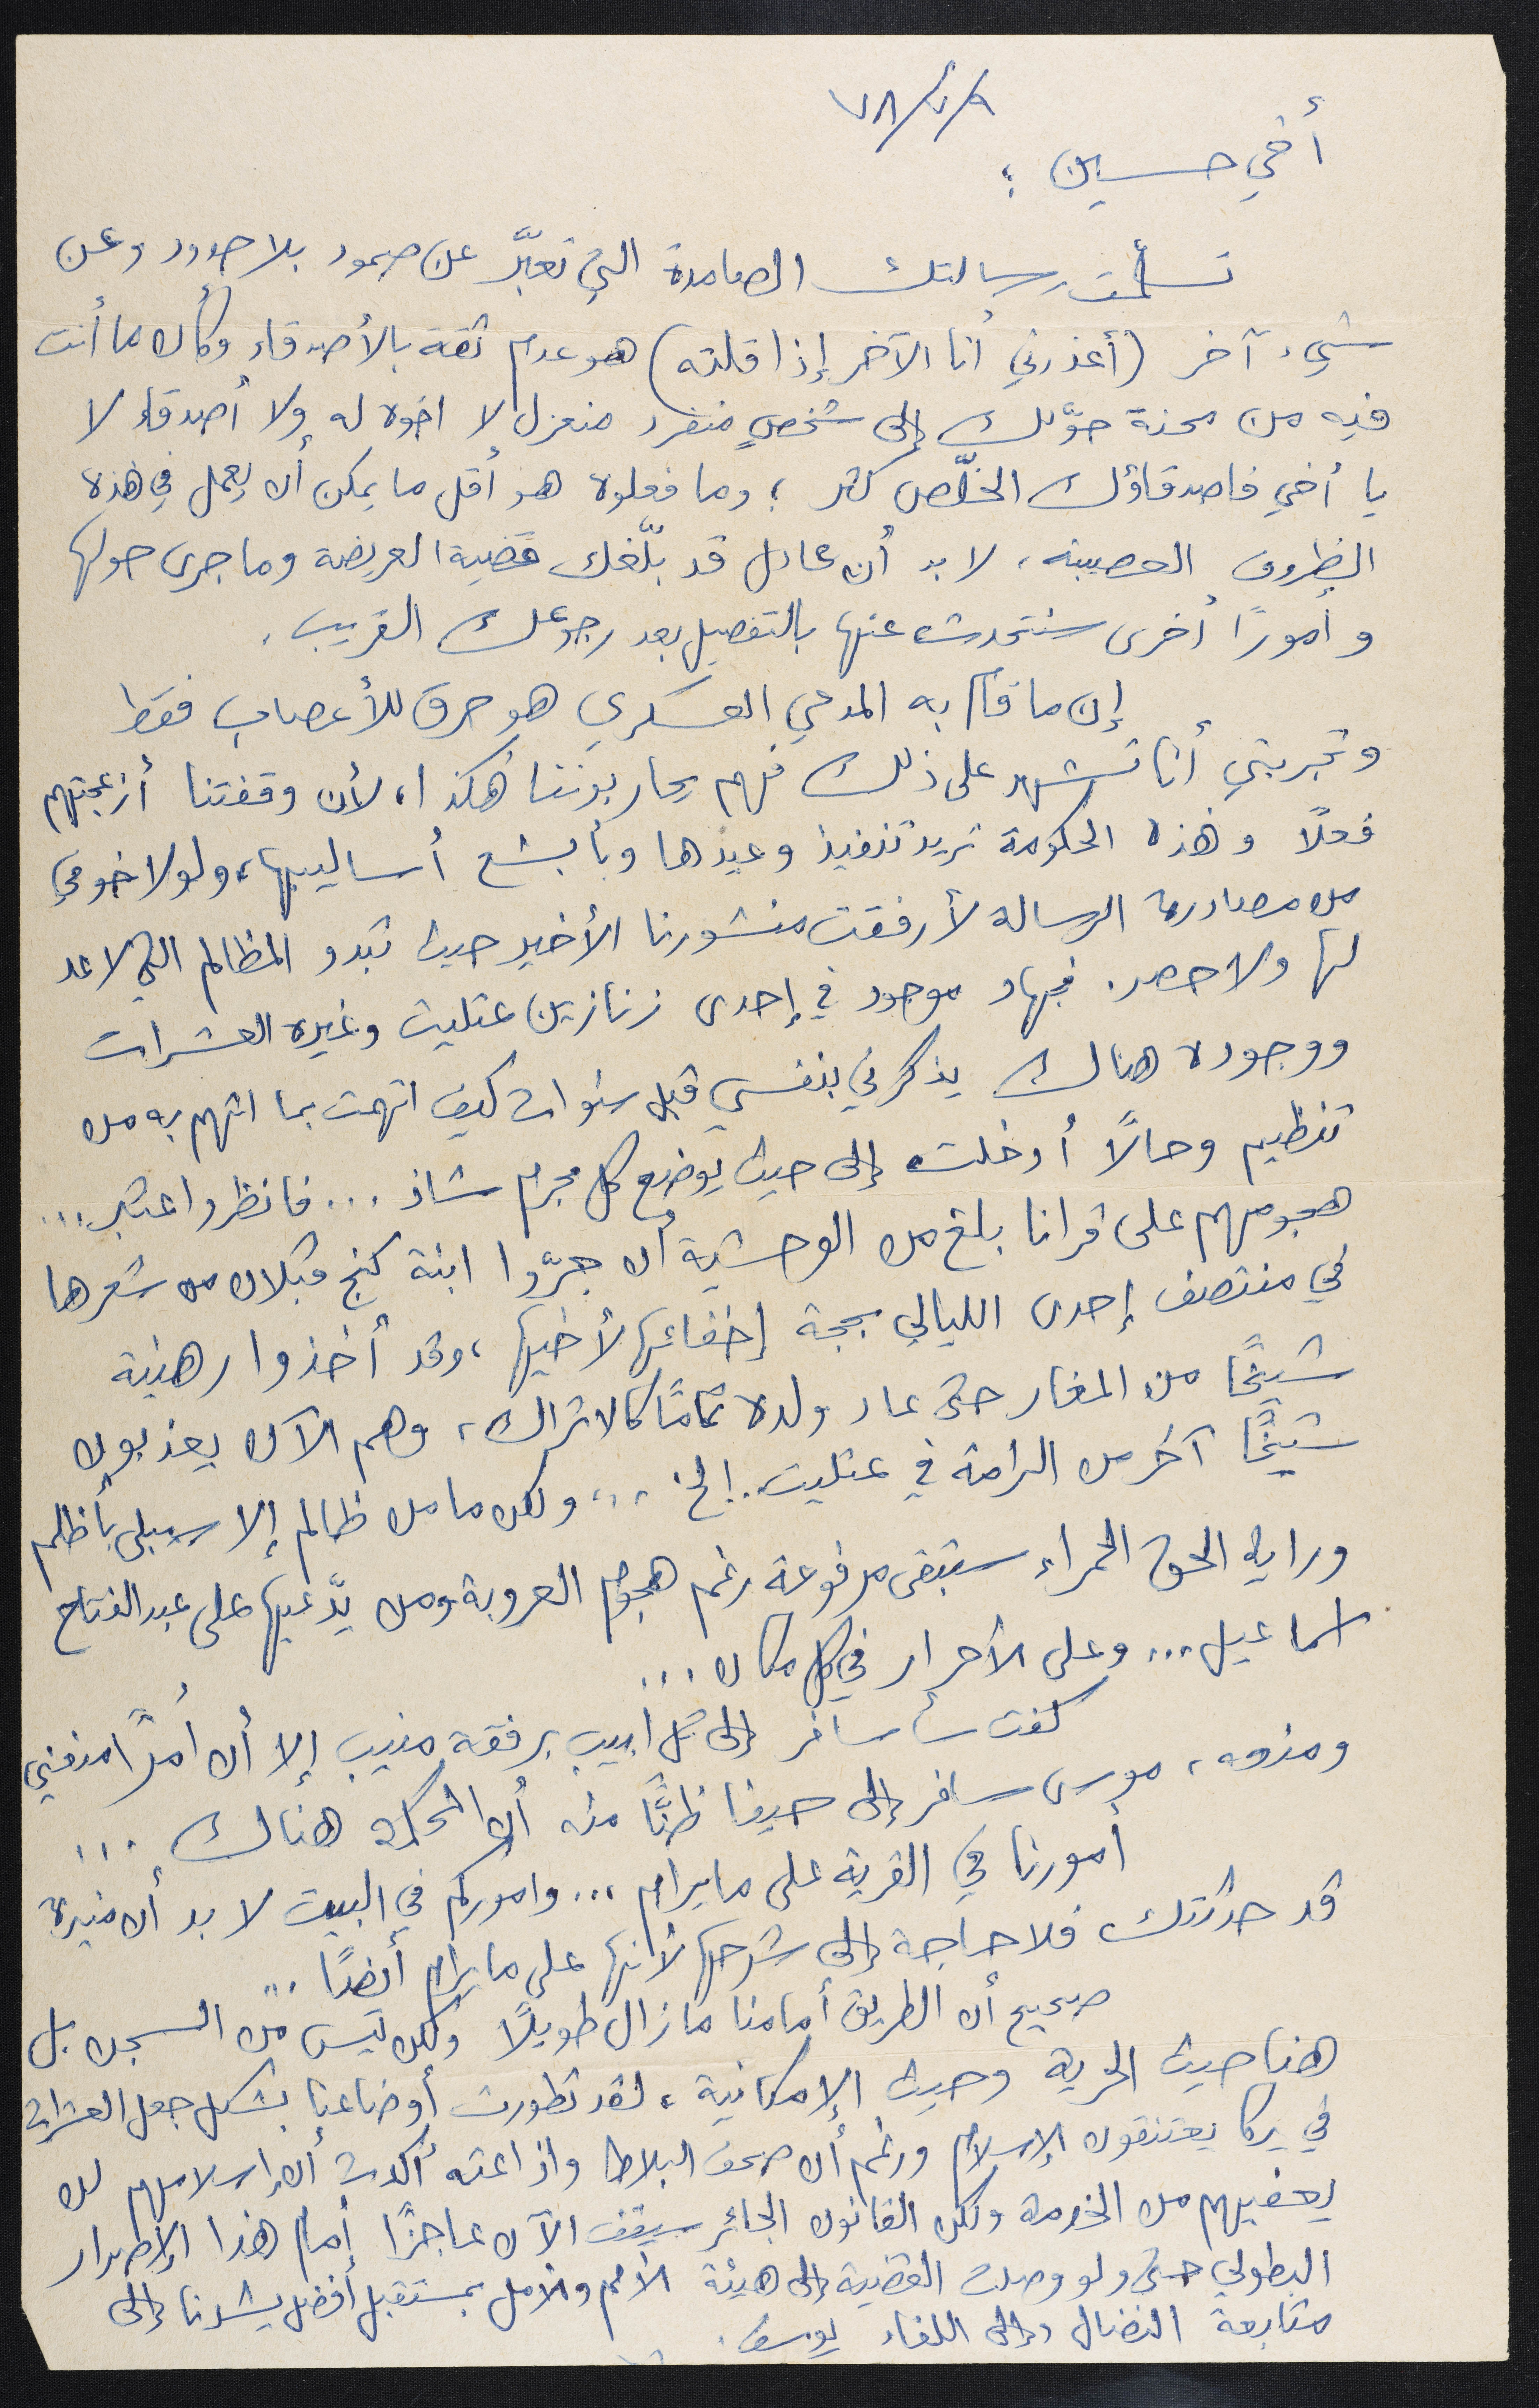 ٧٨/٢/٩
أخي حسين :
تسلمت رسالتك الصامدة التي تعبّر عن صمود بلا حدود وعن
شيء آخر (أعذرني أنا الآخر إذا قلته) هو عدم ثقة بالأصدقاء وكأن ما أنت
فيه من محنة حوّلك إلى شخصٍ منفرد منعزل لا اخوه له ولا أصدقاء لا
يا أخي فاصدقاؤك الخلّص كثر ؛ وما فعلوه هو أقل ما يمكن أن يعمل في هذه
الظروف العصيبه ، لا بد أن عادل قد بلّغك قضية العريضة وما جرى حولها
وأمورًا أخرى سنتحدث عنها بالتفصيل بعد رجوعك القريب .
إن ما قام به المدعي العسكري هو حرق للأعصاب فقط
وتجربتي أنا تشهد على ذلك فهم يحاربوننا هكذا ، لأن وقفتنا أزعجتهم
فعلًا وهذه الحكومة تريد تنفيذ وعيدها وبأبشع أساليبها ، ولولا خوفي
من مصادرة الرسالة لأرفقت منشورنا الأخير حيث تبدو المظالم التي لا عد
لها ولا حصر . فجهاد موجود في إحدى زنازين عتليت وغيره العشرات
ووجوده هناك يذكرني بنفسي قبل سنوات كيف اتهمت بما اتهم به من
تنظيم وحالًا أدخلت إلى حيث يوضع كل مجرم شاذ ... فانظر واعتبر ...
هجومهم على قرانا بلغ من الوحشية أن جرّوا ابنة كنج قبلان من شعرها
في منتصف إحدى الليالي بحجة إخفائها لأخيها ، وقد أخذوا رهينة
شيخًا من المغار حتى عاد ولده تمامًا كالاتراك ، وهم الآن يعذبون
شيخًا آخر من الرامة في عتليت . إلخ ... ولكن ما من ظالم إلا سيبلى بأظلم
وراية الحق الحمراء ستبقى مرفوعة رغم هجوم العروبة ومن يدّعيها على عبد الفتاح
اسماعيل ... وعلى الأحرار في كل مكان ...
كنت سأسافر إلى تل أبيب برفقة منيب إلا أن أمرًا منعني
ومنعه ، موسى سافر إلى حيفا ظنًّا منه أن المحكمة هناك ...
أمورنا في القرية على ما يرام ... واموركم في البيت لا بد أن منيرة
قد حدثتك فلا حاجة إلى شرحها لأنها على ما يرام أيضًا ...
صحيح أن الطريق أمامنا ما زال طويلًا ولكن ليس من السجن بل
هنا حيث الحرية وحيث الإمكانية ، لقد تطورت أوضاعنا بشكل جعل العشرات
في يركا يعتنقون الإسلام ورغم أن صحف البلاط واذاعته أكدت أن إسلامهم لن
يعفيهم من الخدمة ولكن القانون الجائر سيقف الآن عاجزًا أمام هذا الإصرار
البطولي حتى ولو وصلت القضية إلى هيئة الأمم والأمل بمستقبل أفضل يشدنا إلى
متابعة النضال وإلى اللقاء يوسف .